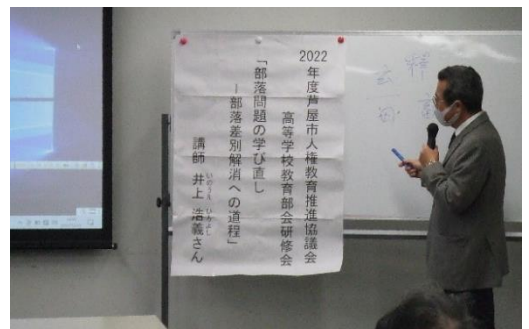 2022年度芦屋市人権教育推進協議会
高等学校教育部会研修会
「部落問題の学び直し
―部落差別解消への道程」
講師 井上 浩義さん
いのうえ ひろよし